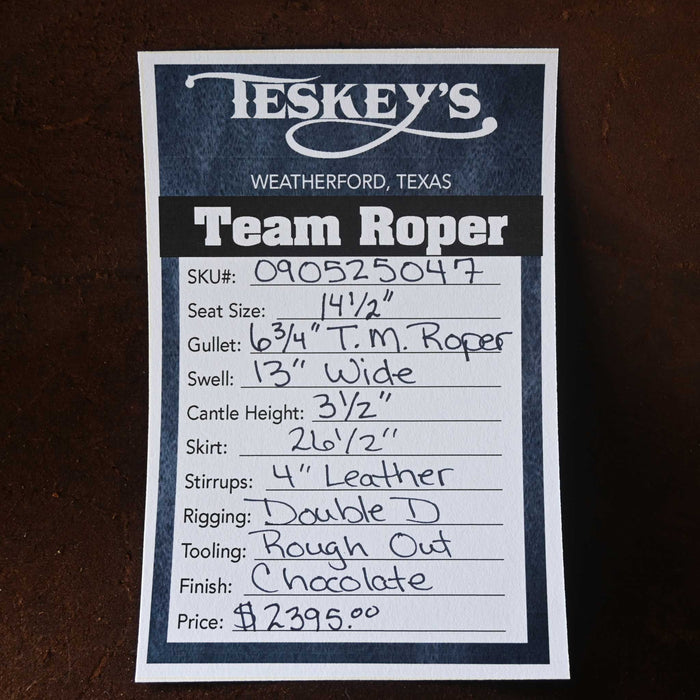 TESKEY'S
WEATHERFORD, TEXAS
Team Roper
SKU#: 090525047
Seat Size: 14 1/2"
Gullet: 6 3/4" T.M. Roper
Swell: 13" Wide
Cantle Height: 3 1/2"
Skirt: 26 1/2"
Stirrups: 4" Leather
Rigging: Double D
Tooling: Rough Out
Finish: Chocolate
Price: $2395.00